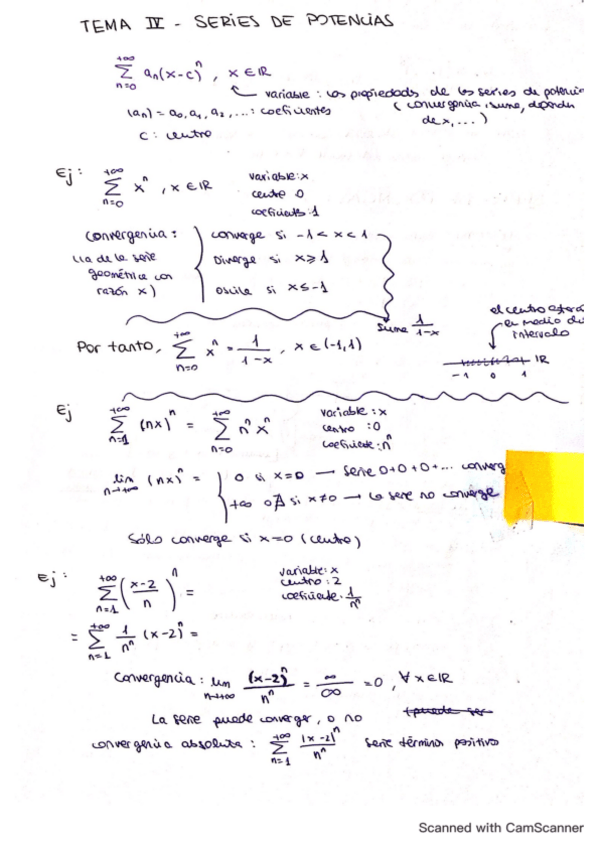 TEMA IV - SERIES DE POTENCIAS
+∞ Σ n=0 aₙ(x-c)ⁿ , x ∈ ℝ
variable : las propiedades de las series de potencia
(aₙ) = a₀, a₁, a₂, ... : coeficientes
(convergencia, suma, dependen de x, ...)
c : centro
Ej : +∞ Σ n=0 xⁿ , x ∈ ℝ
variable: x
centro 0
coeficiente: 1
Convergencia : converge si -1 < x < 1
(la de la serie geométrica con razón x)
Diverge si x ≥ 1
oscila si x ≤ -1
suma 1/(1-x)
el centro estará en medio del intervalo
Por tanto, +∞ Σ n=0 xⁿ = 1/(1-x) , x ∈ (-1,1)
ℝ
-1 0 1
Ej +∞ Σ n=1 (nx)ⁿ = +∞ Σ n=0 nⁿ xⁿ
variable : x
centro : 0
coeficiente : nⁿ
lim n→+∞ (nx)ⁿ = 0 si x=0 → serie 0+0+0+... converg
+∞ o ∄ si x≠0 → la serie no converge
Sólo converge si x=0 (centro)
Ej : +∞ Σ n=1 ((x-2)/n)ⁿ =
variable: x
centro : 2
coeficiente : 1/nⁿ
= +∞ Σ n=1 1/nⁿ (x-2)ⁿ =
Convergencia : lim n→+∞ (x-2)ⁿ/nⁿ = ∞/∞ = 0 , ∀ x ∈ ℝ
La serie puede converger, o no
(puede ser
convergencia absoluta : +∞ Σ n=1 |x-2|ⁿ/nⁿ serie término positivo
Scanned with CamScanner